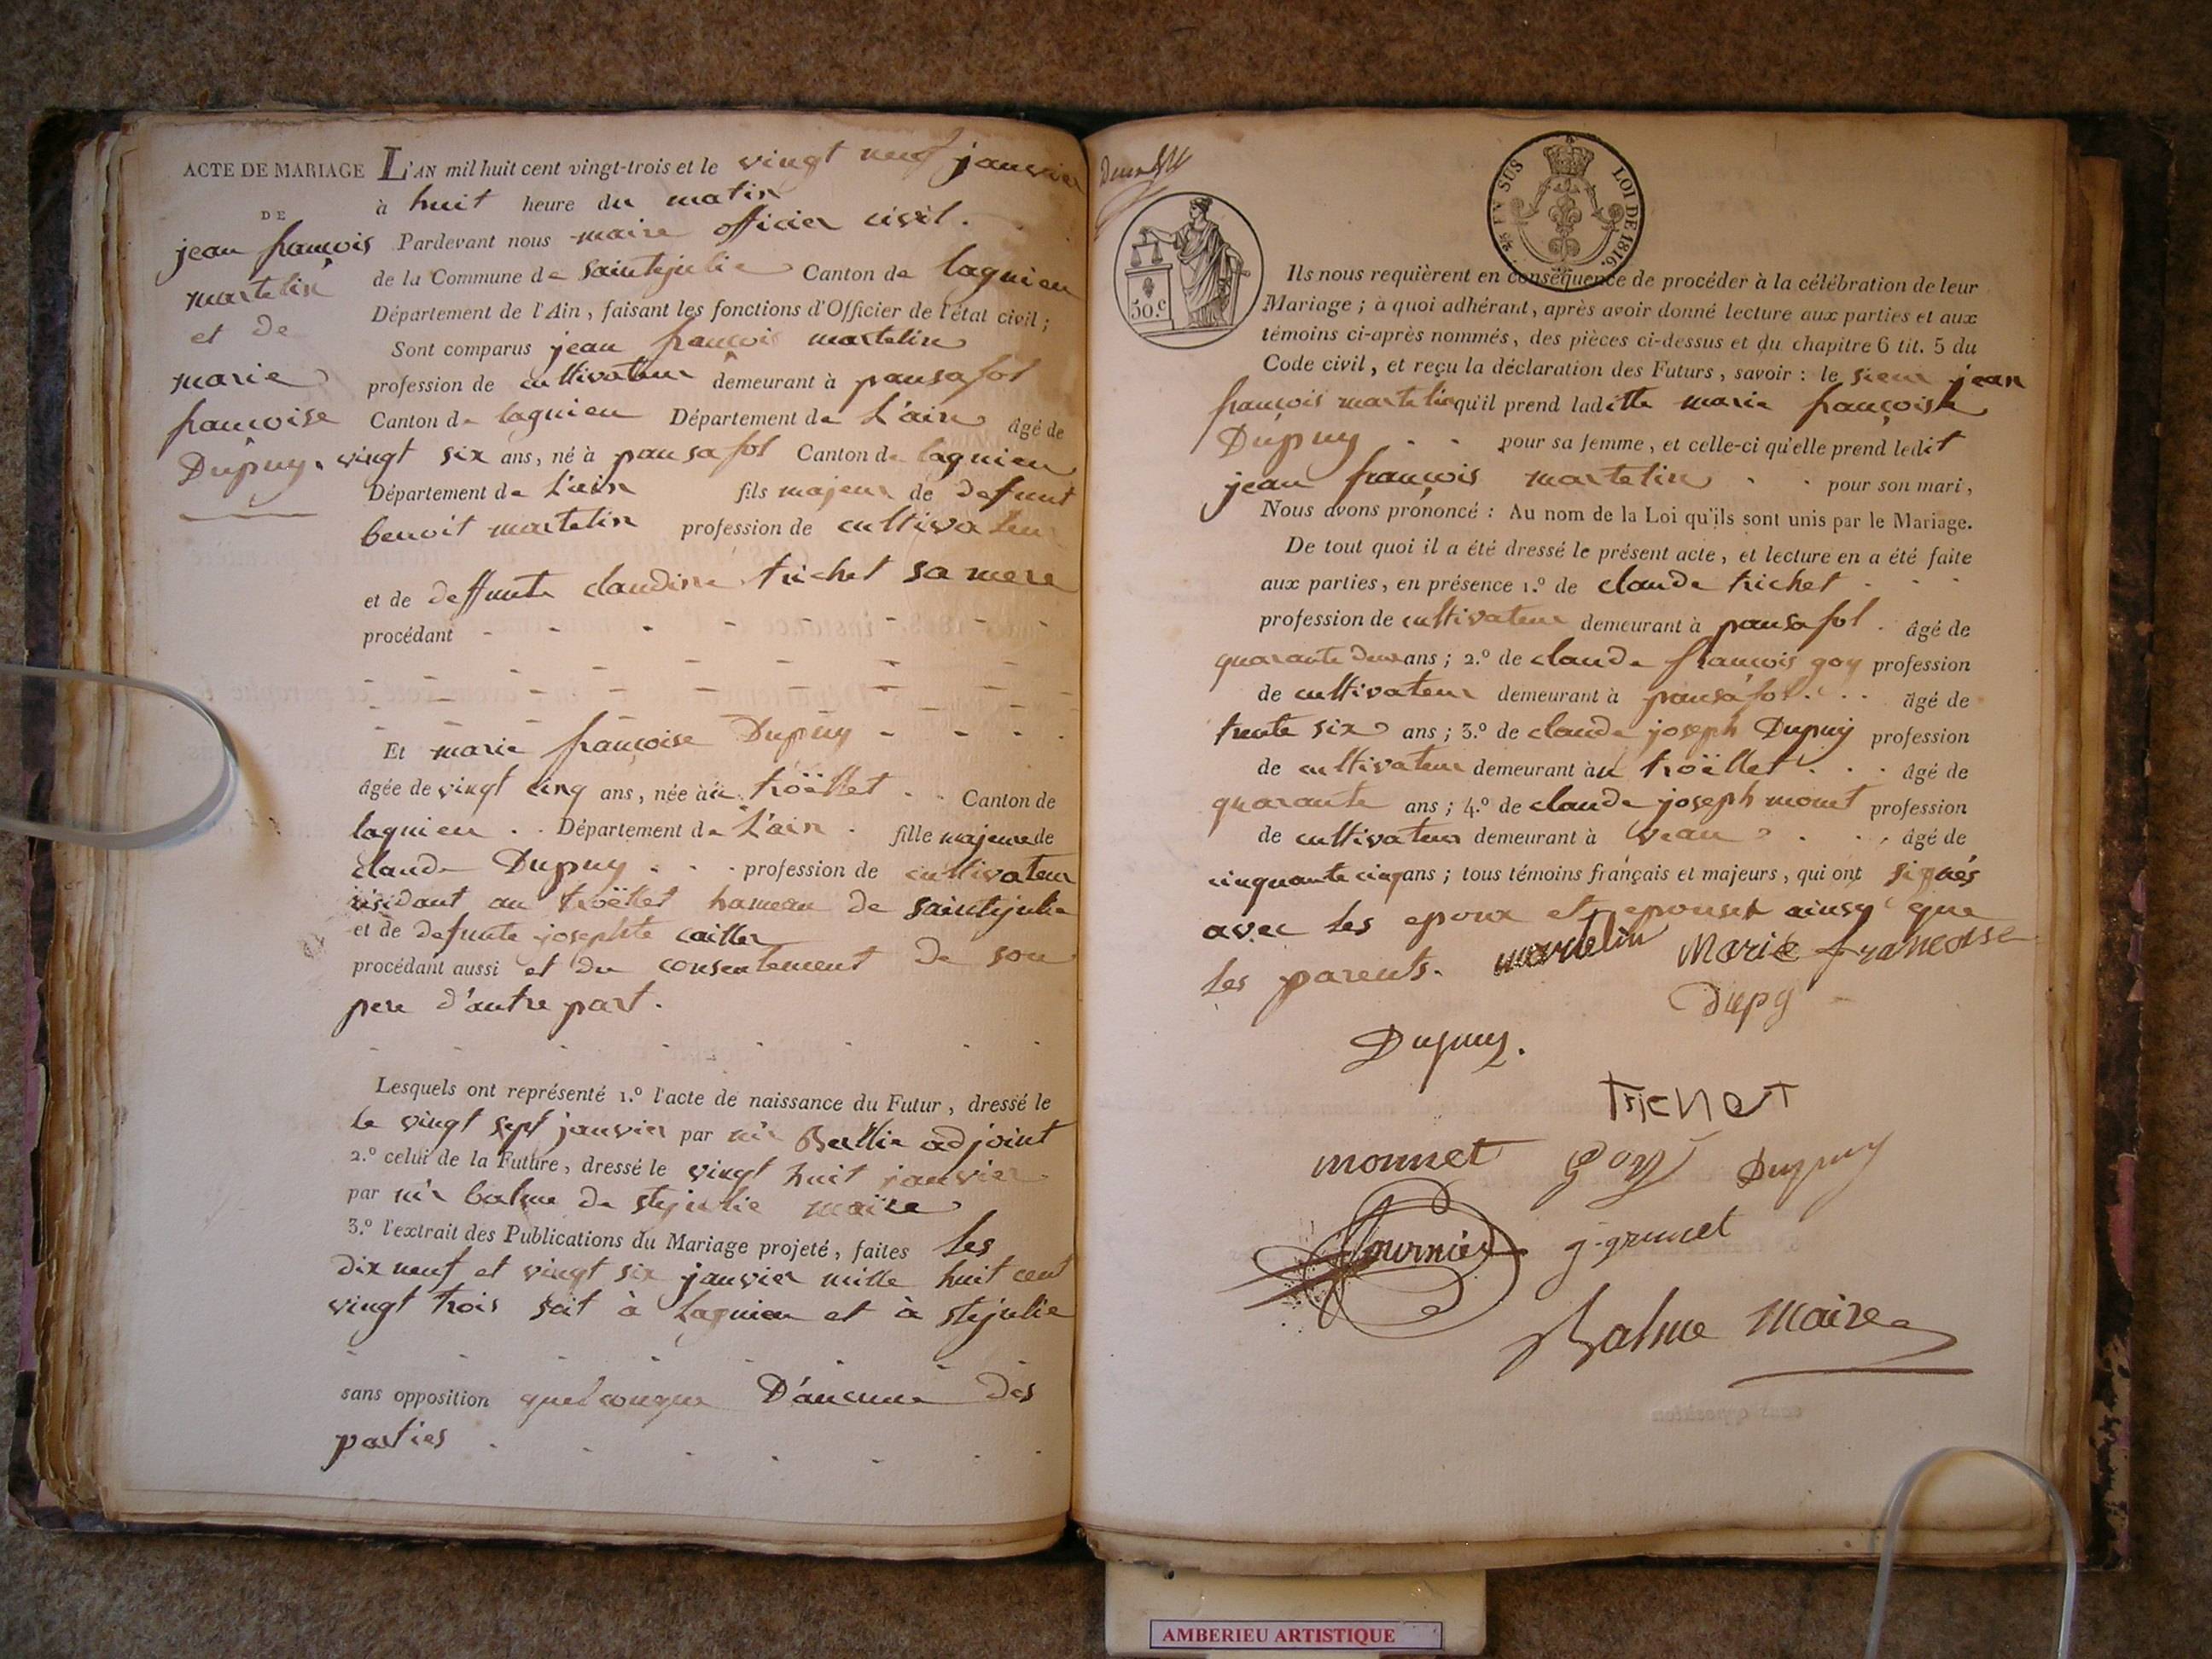 ACTE DE MARIAGE
DE
jean françois
martelin
et de
marie
françoise
Dupuy.
L'AN mil huit cent vingt-trois et le vingt neuf janvier
à huit heure du matin
Pardevant nous maire officier civil.
de la Commune de Saintejulie Canton de lagnieu
Département de l'Ain, faisant les fonctions d'Officier de l'état civil ;
Sont comparus jean françois martelin
profession de cultivateur demeurant à pansafol
Canton de lagnieu Département de L'ain âgé de
vingt six ans, né à pansafol Canton de lagnieu
Département de L'ain fils majeur de defunt
benoit martelin profession de cultivateur
et de deffunte claudine trichet sa mere
procédant
Et marie françoise Dupuy
âgée de vingt cinq ans, née àu troëllet Canton de
lagnieu Département de L'ain fille majeure de
claude Dupuy profession de cultivateur
résidant au troëllet hameau de saintejulie
et de defunte josephte cailler
procédant aussi et du consentement de son
pere d'autre part.
Lesquels ont représenté 1.º l'acte de naissance du Futur, dressé le
le vingt sept janvier par mr Berllie adjoint
2.º celui de la Future, dressé le vingt huit janvier
par mr balme de stejulie maire
3.º l'extrait des Publications du Mariage projeté, faites les
dix neuf et vingt six janvier mille huit cent
vingt trois soit à Lagnieu et à stejulie
sans opposition quelconque D'aucune des
parties
IN SUS
LOI DE 1816.
50.c
Ils nous requièrent en conséquence de procéder à la célébration de leur
Mariage ; à quoi adhérant, après avoir donné lecture aux parties et aux
témoins ci-après nommés, des pièces ci-dessus et du chapitre 6 tit. 5 du
Code civil, et reçu la déclaration des Futurs, savoir : le sieur jean
françois martelin qu'il prend laditte marie françoise
Dupuy pour sa femme, et celle-ci qu'elle prend ledit
jean françois martelin pour son mari,
Nous avons prononcé : Au nom de la Loi qu'ils sont unis par le Mariage.
De tout quoi il a été dressé le présent acte, et lecture en a été faite
aux parties, en présence 1.º de claude trichet
profession de cultivateur demeurant à pansafol. âgé de
quarante deux ans ; 2.º de claude françois goy profession
de cultivateur demeurant à pansafol. âgé de
trente six ans ; 3.º de claude joseph Dupuy profession
de cultivateur demeurant àu troëllet âgé de
quarante ans ; 4.º de claude joseph monet profession
de cultivateur demeurant à veau âgé de
cinquante cinq ans ; tous témoins français et majeurs, qui ont signés
avec les epoux et epouse ainsy que
les parents. martelin Marie francoise
Dupy
Dupuy.
trichet
monnet goy Dupuy
fournier g-grumet
Balme Maire
AMBERIEU ARTISTIQUE